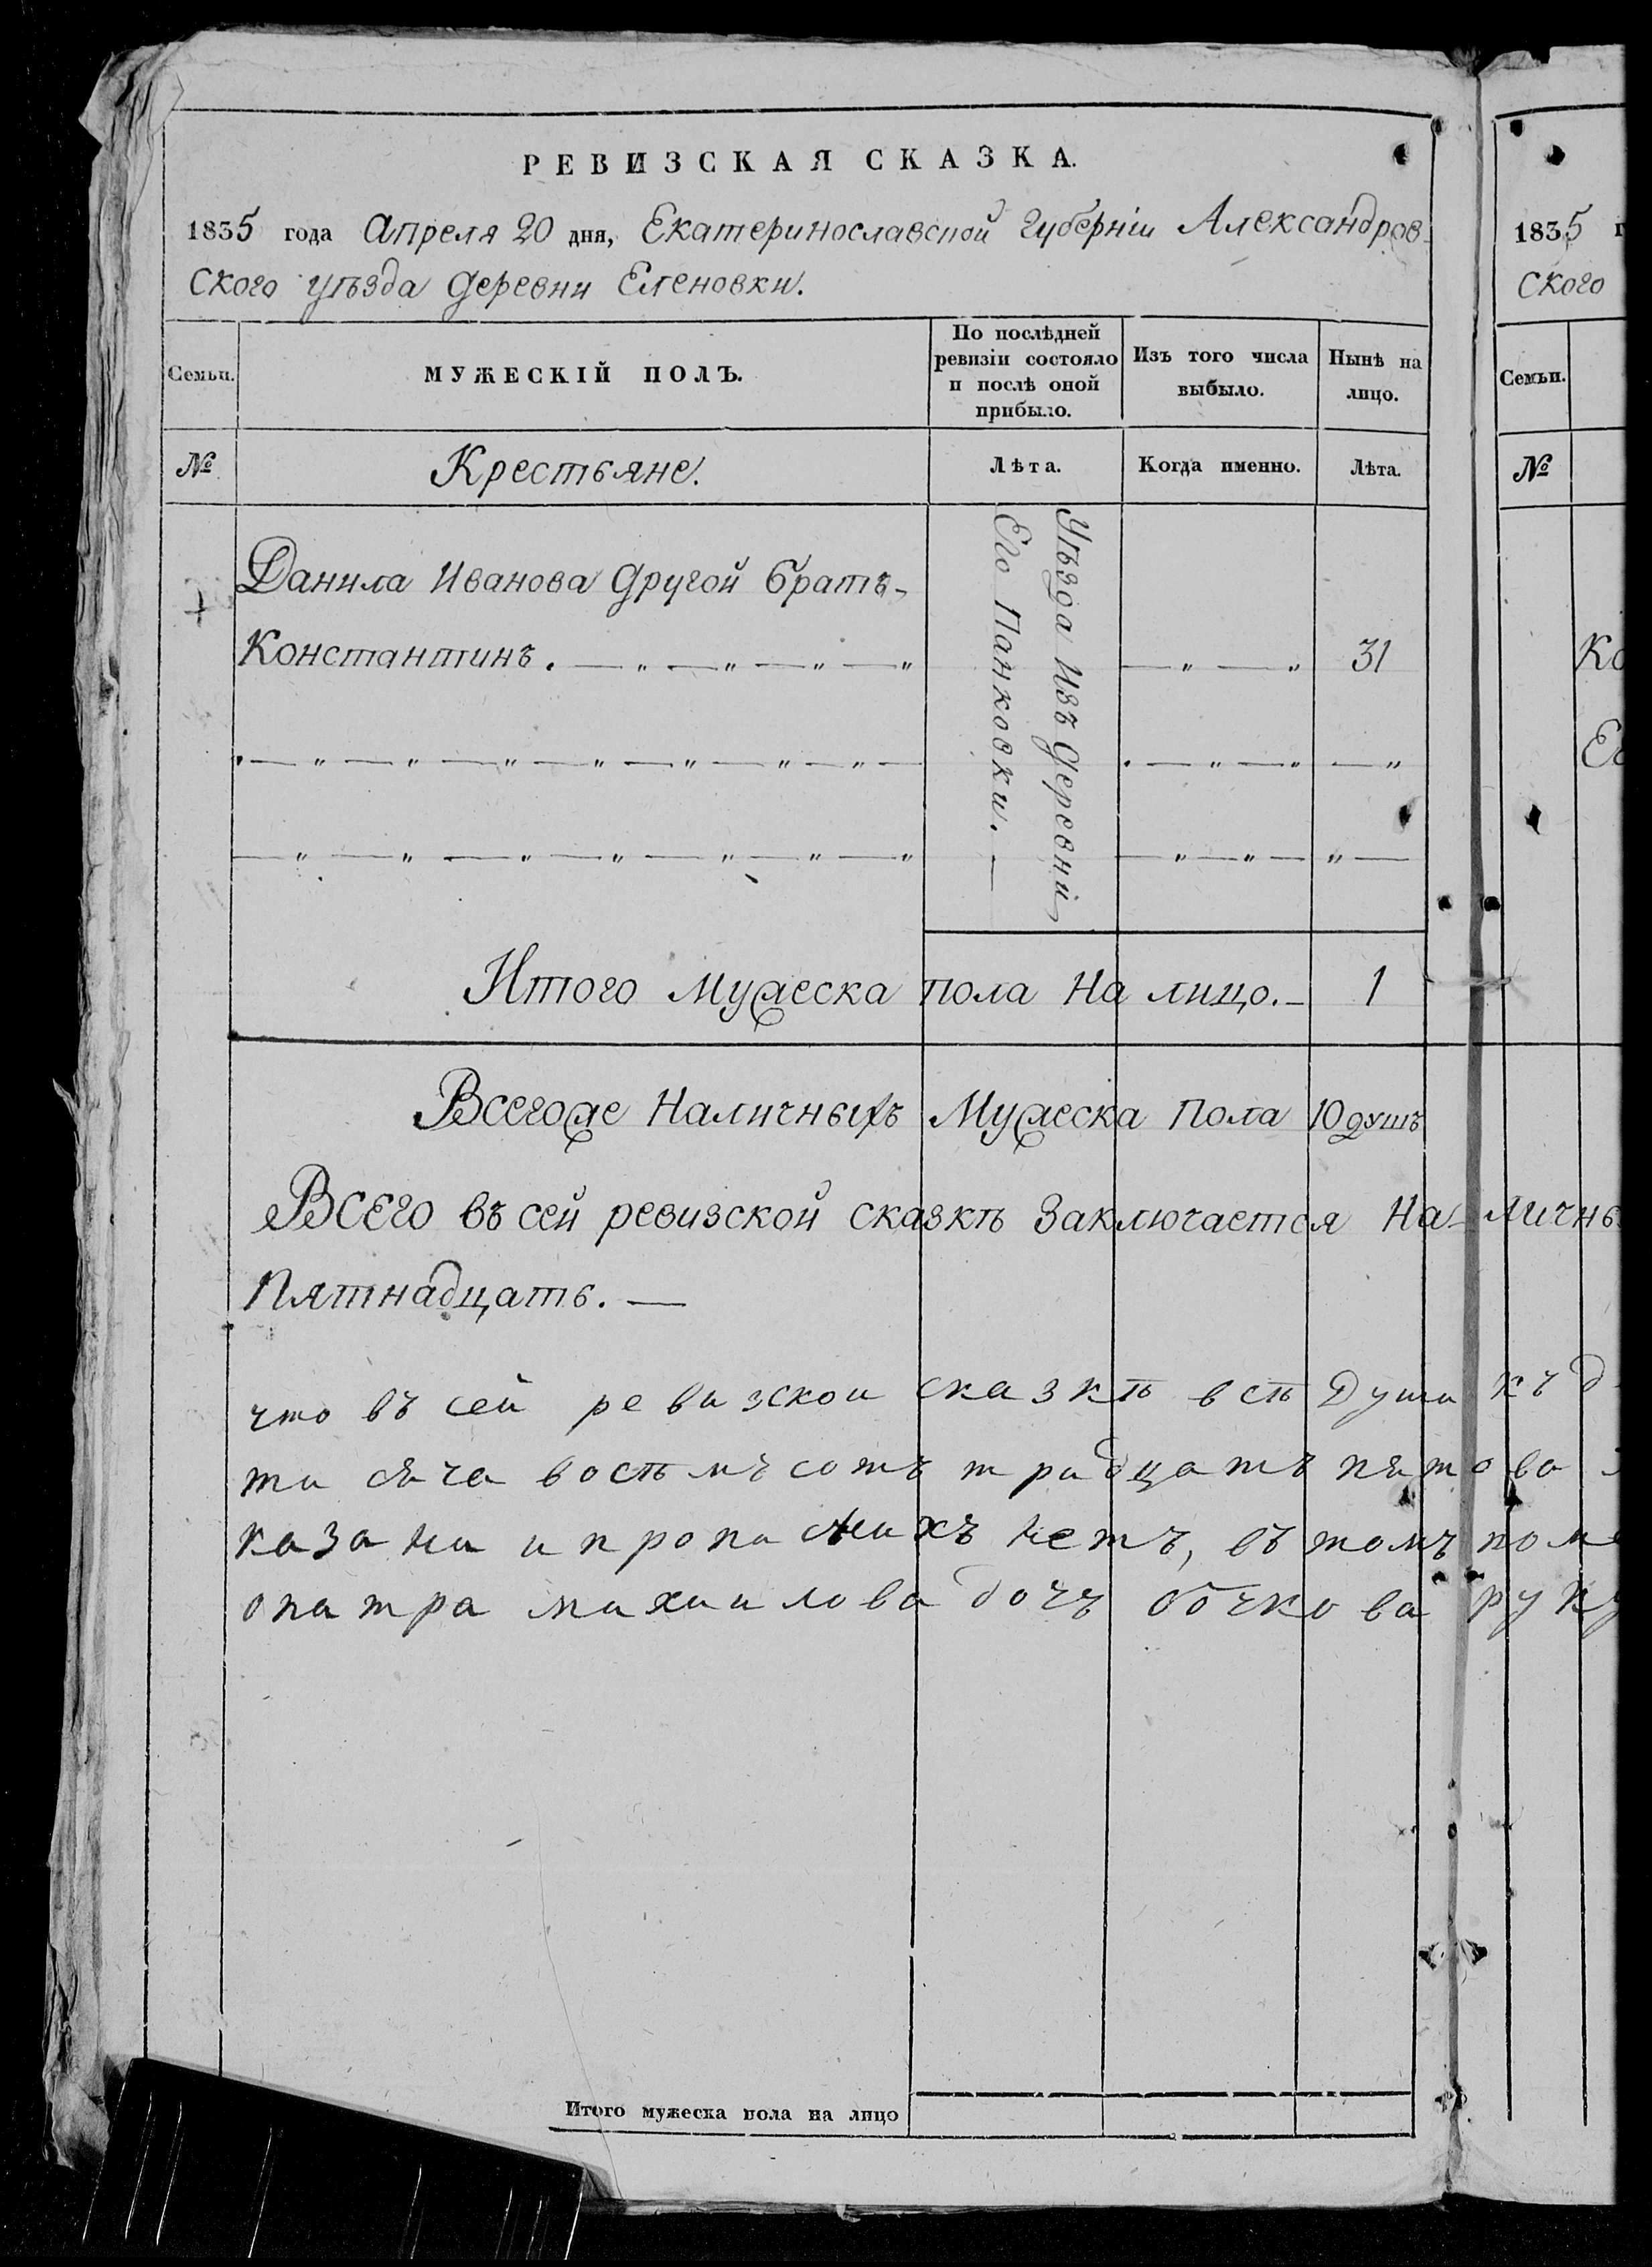 РЕВИЗСКАЯ СКАЗКА.
1835 года Апреля 20 дня, Екатеринославской Губерніи Александров-
ского уѣзда деревни Еленовки.
Семьи.
МУЖЕСКІЙ ПОЛЪ.
По послѣдней
ревизіи состояло
и послѣ оной
прибыло.
Изъ того числа
выбыло.
Нынѣ на
лицо.
№
Крестьяне.
Лѣта.
Когда именно.
Лѣта.
Данила Иванова другой братъ-
Константинъ. 31
Уѣзда Изъ деревни
Его Панковки.
Итого мужеска пола На лицо. 1
Всегоже Наличныхъ Мужеска Пола 10 душъ
Всего въ сей ревизской сказкѣ Заключается На-личны
Пятнадцать.
что въ сей ревизскои сказкѣ всѣ Души къ д
ти сяча восѣмъ сотъ тридцатъ пятова
казани и прописихъ нетъ, въ томъ поме
опатра михаилова дочъ бочкова руку
Итого мужеска пола на лицо
1835 г
ского
Семьи.
№
Ко
Ег